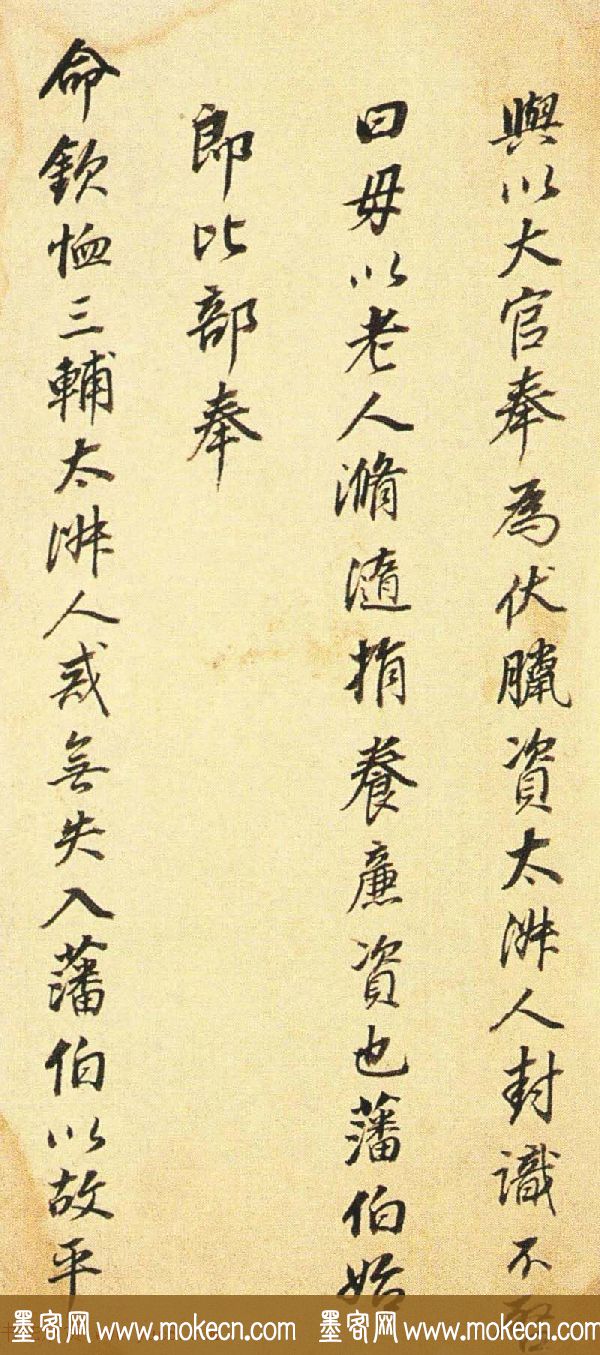 與以大官奉為伏臘資太淑人封識不啓
曰毋以老人滫瀡捐養廉資也藩伯始
即比部奉
命欽恤三輔太淑人戒無失入藩伯以故平
墨客网 www.mokecn.com 墨客网 www.mokecn.com